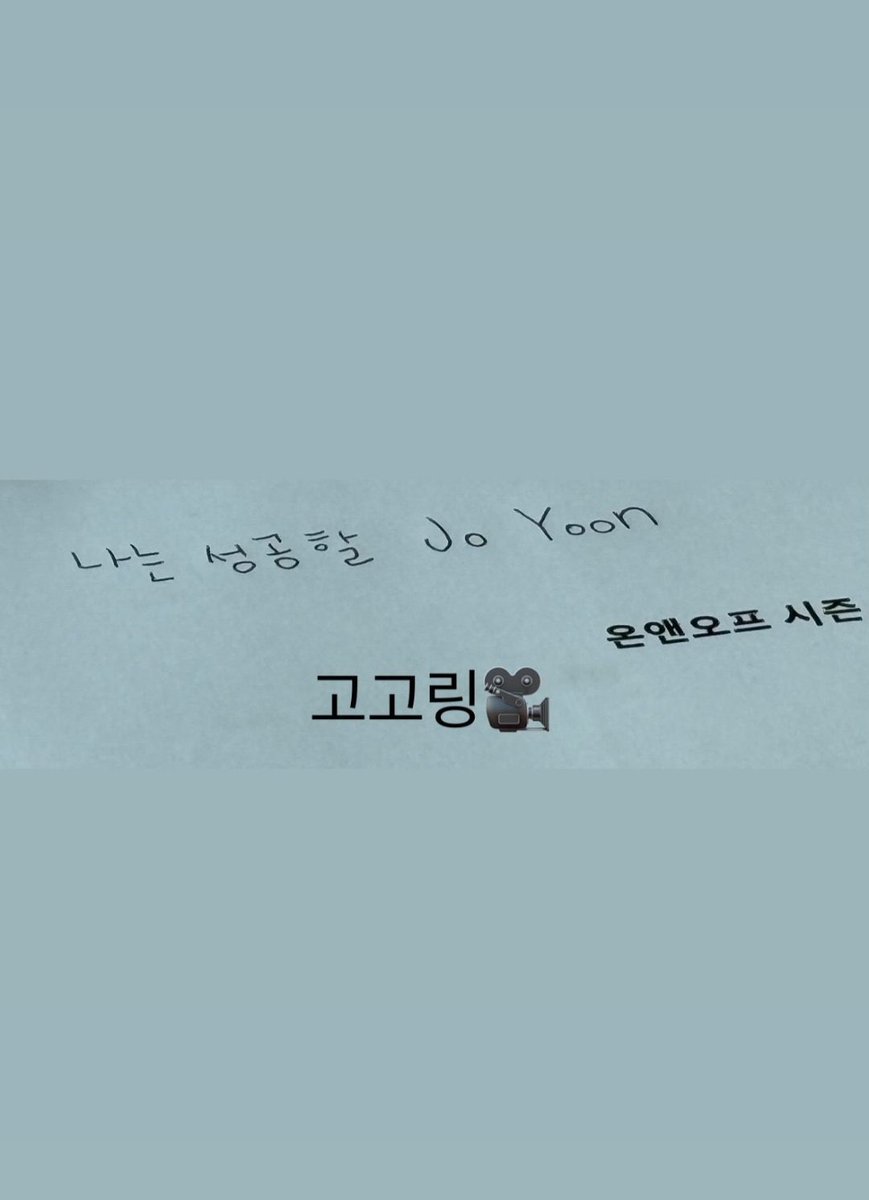 나는 성공할 Jo Yoon
온앤오프 시즌
고고링🎥